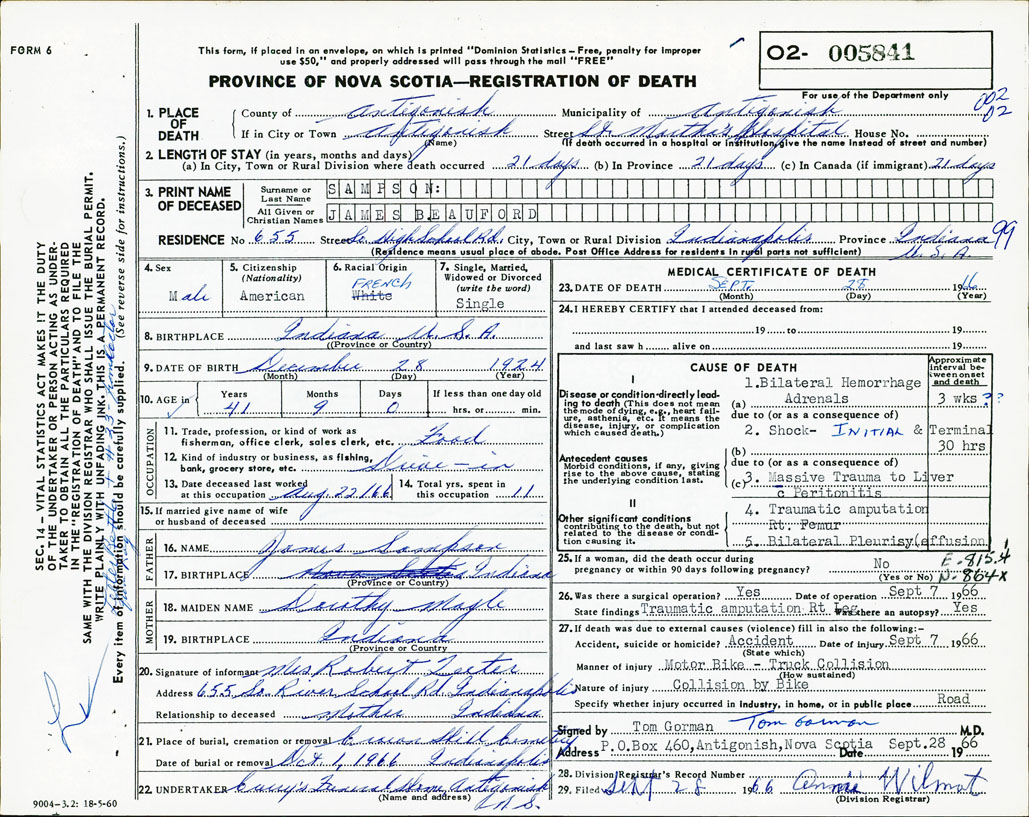 FORM 6
This form, if placed in an envelope, on which is printed "Dominion Statistics – Free, penalty for improper
use $50," and properly addressed will pass through the mail "FREE"
PROVINCE OF NOVA SCOTIA—REGISTRATION OF DEATH
02- 005841
For use of the Department only
002
02
1. PLACE OF DEATH
County of Antigonish Municipality of Antigonish
If in City or Town Antigonish Street St. Martha's Hospital House No.
(Name) (If death occurred in a hospital or institution, give the name instead of street and number)
2. LENGTH OF STAY (in years, months and days)
(a) In City, Town or Rural Division where death occurred 21 days (b) In Province 21 days (c) In Canada (if immigrant) 21 days
3. PRINT NAME OF DECEASED
Surname or Last Name SAMPSON:
All Given or Christian Names JAMES BEAUFORD
RESIDENCE No 655 Street So High School Rd, City, Town or Rural Division Indianapolis Province Indiana 99
(Residence means usual place of abode. Post Office Address for residents in rural parts not sufficient) U.S.A.
4. Sex
Male
5. Citizenship
(Nationality)
American
6. Racial Origin
FRENCH
White
7. Single, Married, Widowed or Divorced
(write the word)
Single
8. BIRTHPLACE Indiana U.S.A.
(Province or Country)
9. DATE OF BIRTH December 28 1924
(Month) (Day) (Year)
10. AGE in Years Months Days If less than one day old
41 9 0 hrs. or min.
OCCUPATION
11. Trade, profession, or kind of work as
fisherman, office clerk, sales clerk, etc. Food
12. Kind of industry or business, as fishing,
bank, grocery store, etc. Drive-in
13. Date deceased last worked
at this occupation Aug. 22/66
14. Total yrs. spent in
this occupation 11
15. If married give name of wife
or husband of deceased
FATHER
16. NAME James Sampson
17. BIRTHPLACE Indiana
(Province or Country)
MOTHER
18. MAIDEN NAME Dorothy
19. BIRTHPLACE Indiana
(Province or Country)
20. Signature of informant Mrs Robert Teeter
Address 655 So. River School Rd Indianapolis
Relationship to deceased Mother Indiana
21. Place of burial, cremation or removal Crown Hill Cemetery
Date of burial or removal Oct 1, 1966 Indianapolis
22. UNDERTAKER Curry's Funeral Home, Antigonish
(Name and address) N.S.
9004–3.2: 18-5-60
MEDICAL CERTIFICATE OF DEATH
23. DATE OF DEATH SEPT. 28 1966
(Month) (Day) (Year)
24. I HEREBY CERTIFY that I attended deceased from:
19 to 19
and last saw h alive on 19
CAUSE OF DEATH
Approximate interval between onset and death
I
Disease or condition directly leading to death (This does not mean the mode of dying, e.g., heart failure, asthenia, etc. It means the disease, injury, or complication which caused death.)
1. Bilateral Hemorrhage
(a) Adrenals 3 wks ??
due to (or as a consequence of)
2. Shock- INITIAL & Terminal
(b) 30 hrs
Antecedent causes
Morbid conditions, if any, giving rise to the above cause, stating the underlying condition last.
due to (or as a consequence of)
(c) 3. Massive Trauma to Liver
c Peritonitis
II
Other significant conditions
contributing to the death, but not related to the disease or condition causing it.
4. Traumatic amputation
Rt. Femur
5. Bilateral Pleurisy (effusion)
25. If a woman, did the death occur during
pregnancy or within 90 days following pregnancy? No
(Yes or No)
E-815.4
N-864X
26. Was there a surgical operation? Yes Date of operation Sept 7 1966
State findings Traumatic amputation Rt Leg Was there an autopsy? Yes
27. If death was due to external causes (violence) fill in also the following:–
Accident, suicide or homicide? Accident Date of injury Sept 7 1966
(State which)
Manner of injury Motor Bike – Truck Collision
(How sustained)
Nature of injury Collision by Bike
Specify whether injury occurred in industry, in home, or in public place Road
Signed by Tom Gorman Tom Gorman M.D.
Address P.O.Box 460, Antigonish, Nova Scotia Date Sept. 28 1966
28. Division Registrar's Record Number
29. Filed Sept 28 1966 Annie Wilmot
(Division Registrar)
SEC. 14 – VITAL STATISTICS ACT MAKES IT THE DUTY
OF THE UNDERTAKER OR PERSON ACTING AS UNDER-
TAKER TO OBTAIN ALL THE PARTICULARS REQUIRED
IN THE "REGISTRATION OF DEATH" AND TO FILE THE
SAME WITH THE DIVISION REGISTRAR WHO SHALL ISSUE THE BURIAL PERMIT.
WRITE PLAINLY WITH UNFADING INK. THIS IS A PERMANENT RECORD.
Every item of information should be carefully supplied. (See reverse side for instructions.)